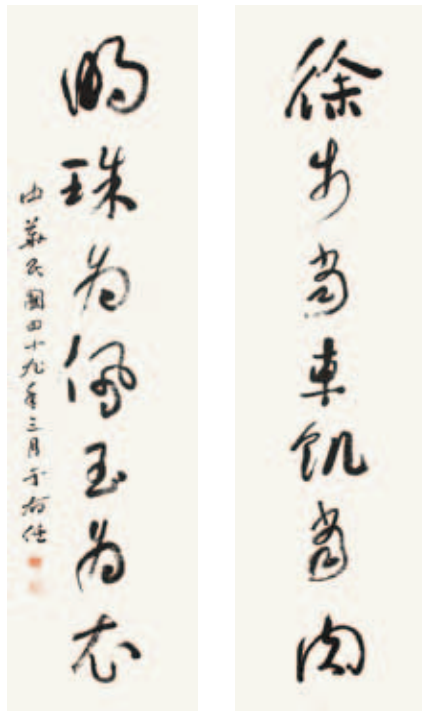 徐步當車飢當肉
明珠為佩玉為衣
中華民國四十九年三月于右任